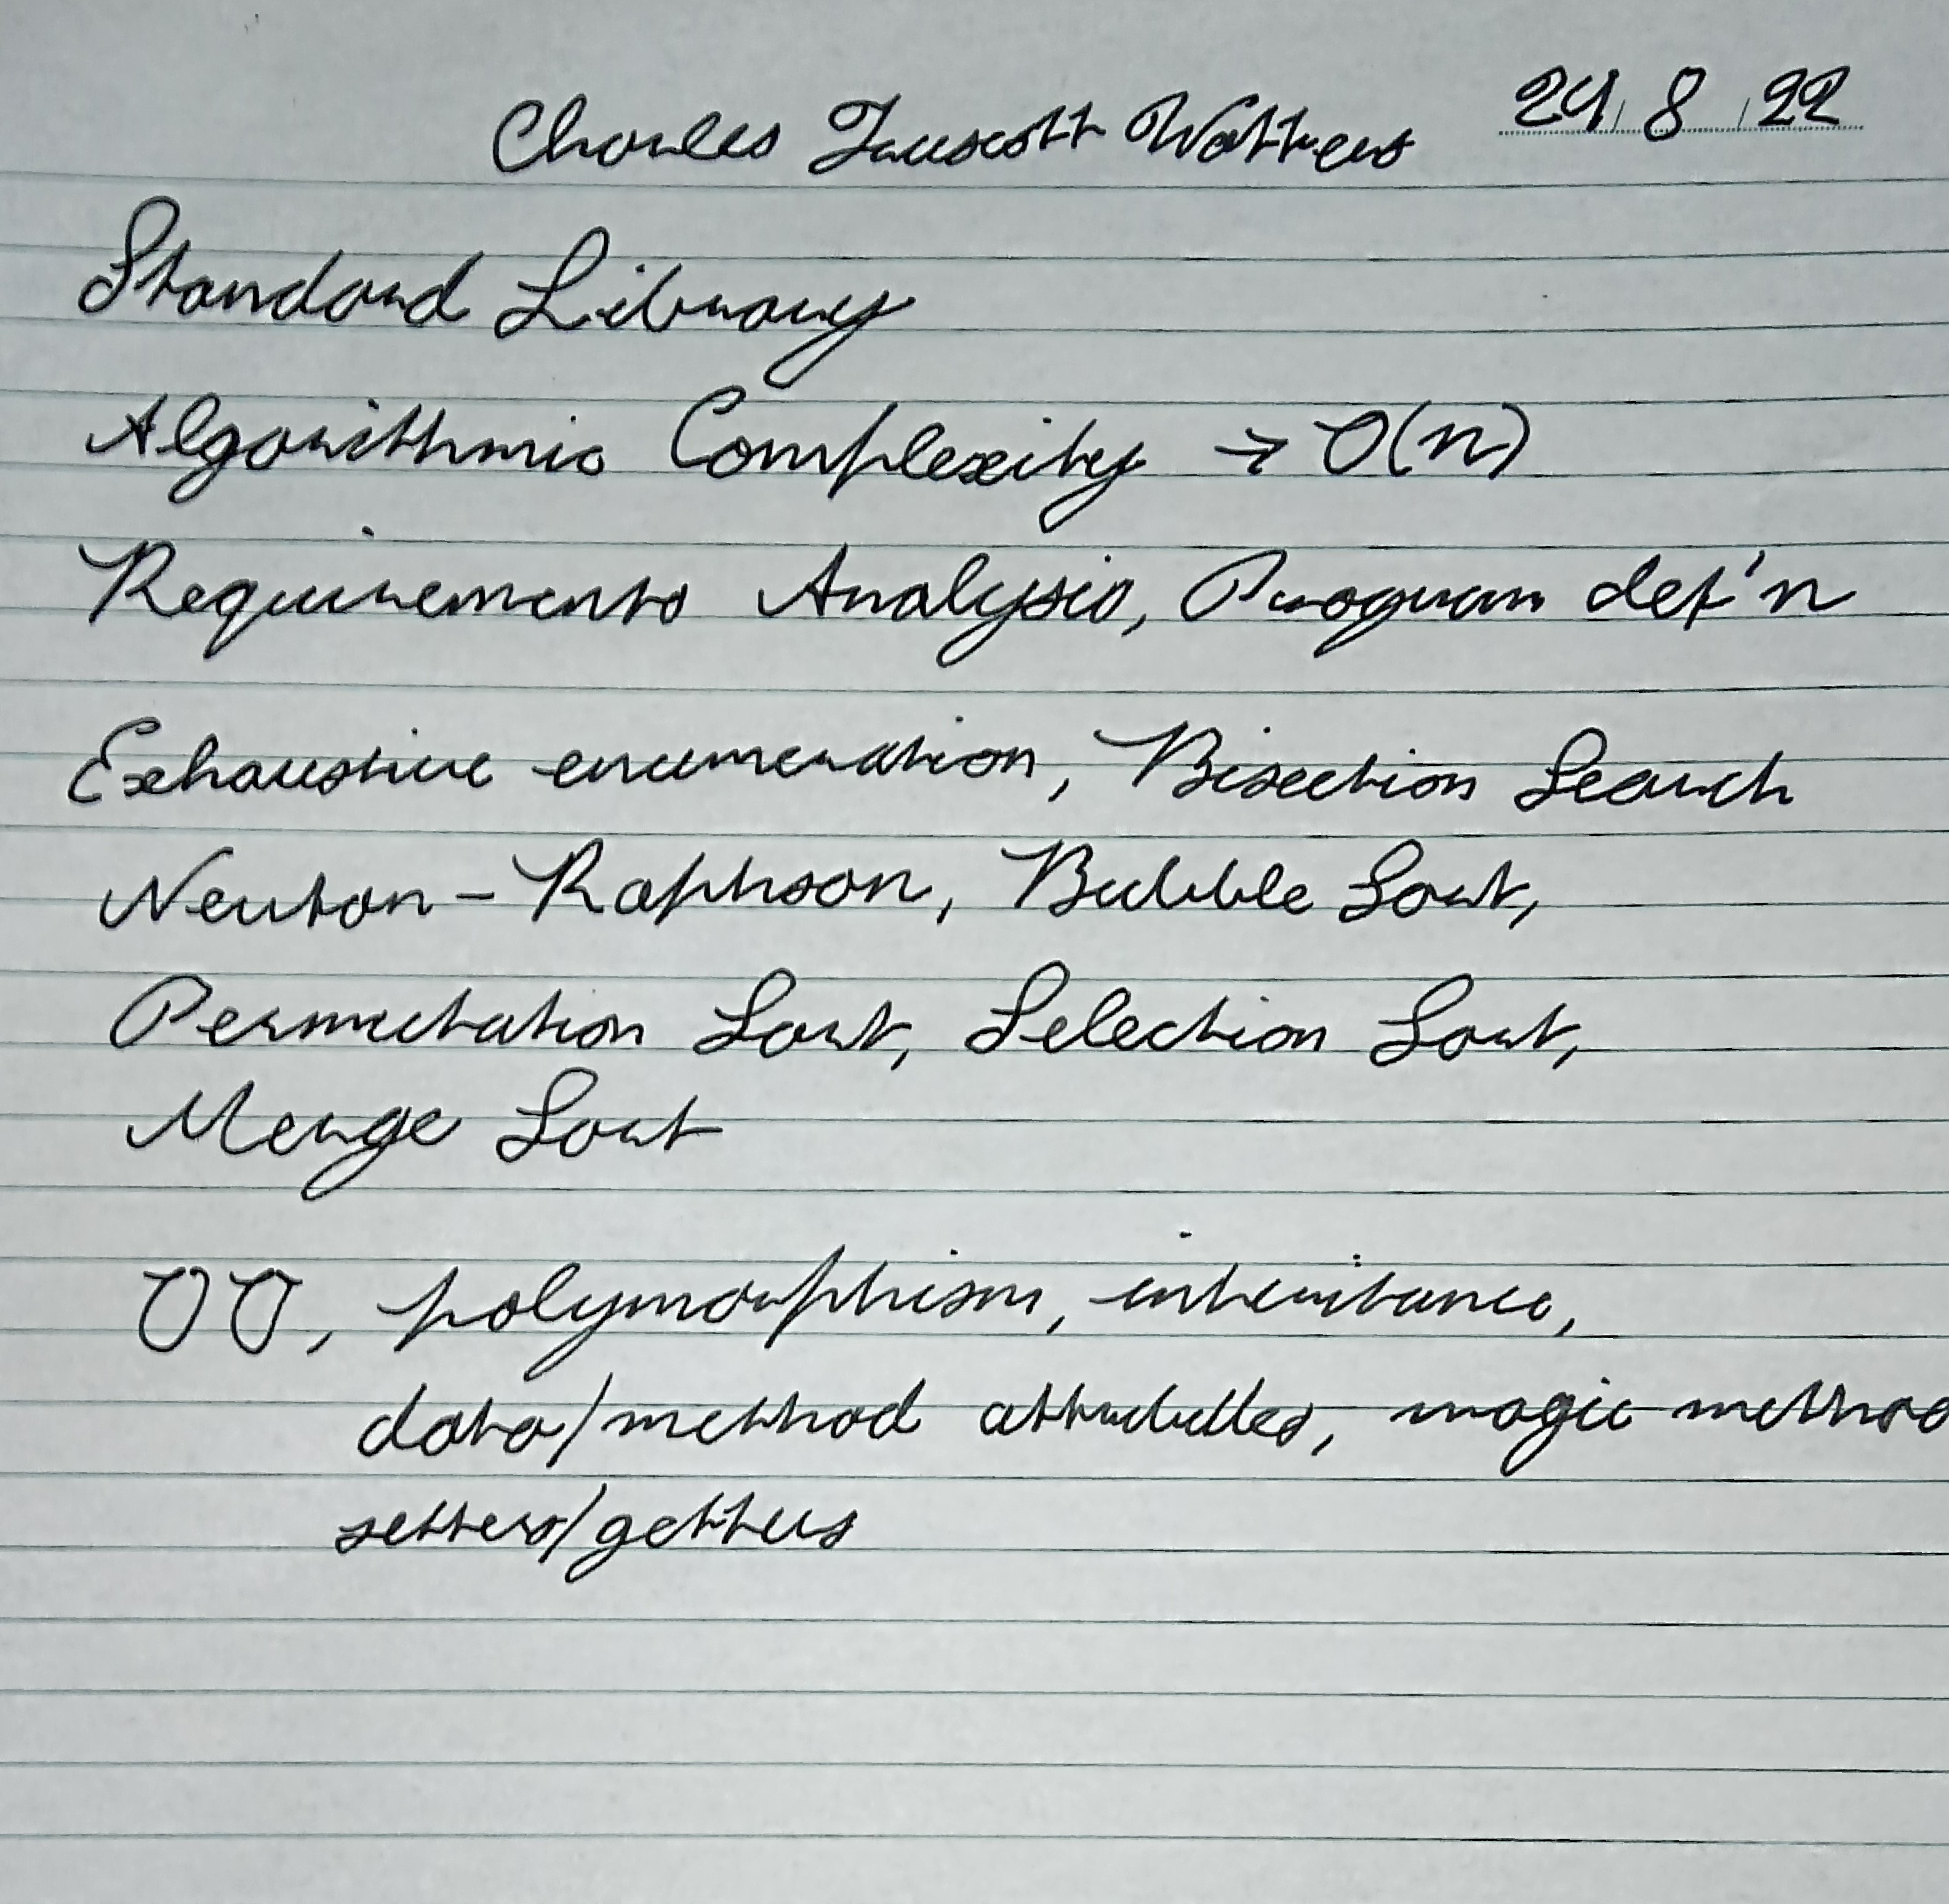 Charles Truscott Watters 24/8/22
Standard Library
Algorithmic Complexity → O(n)
Requirements Analysis, Program def'n
Exhaustive enumeration, Bisection Search
Newton-Raphson, Bubble Sort,
Permutation Sort, Selection Sort,
Merge Sort
OO, polymorphism, inheritance,
data/method attributes, magic metho
setters/getters